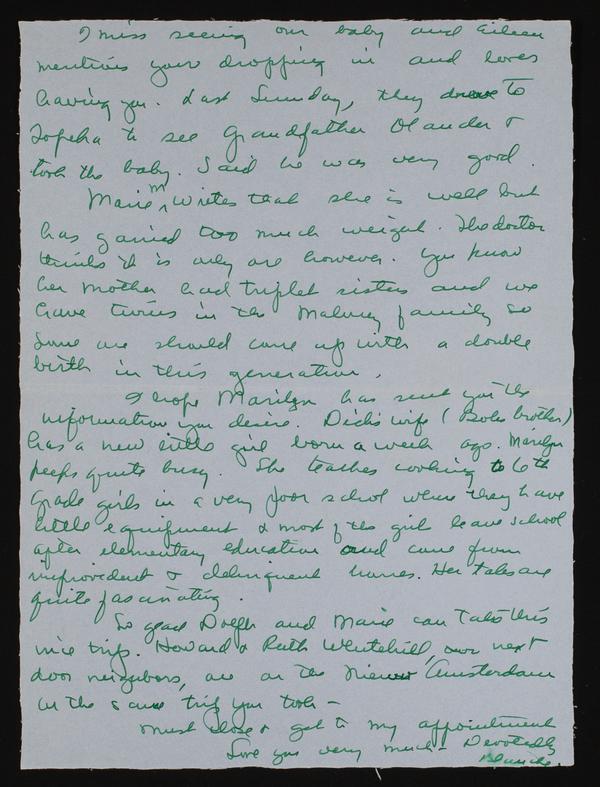 I miss seeing our baby and Eileen
mentions your dropping in and loves
having you. Last Sunday, they drove to
Topeka to see Grandfather Olander &
took the baby. Said he was very good.
Marie M. writes that she is well but
has gained too much weight. The doctor
thinks it is only one however. You know
her mother had triplet sisters and we
have twins in the Maloney family so
some one should come up with a double
birth in this generation.
I hope Marilyn has sent you the
information you desire. Dick's wife (Bob's brother)
has a new little girl born a week ago. Marilyn
keeps quite busy. She teaches cooking to 6th
grade girls in a very poor school where they have
little equipment & most of the girls leave school
after elementary education and come from
improvident & delinquent homes. Her tales are
quite fascinating.
So glad and Marie can take this
nice trip. Howard & Ruth Whitehill, our next
door neighbors, are on the Nieuw Amsterdam
on the same trip you took -
Must close & get to my appointment
Love you very much - Devotedly
Blanche.